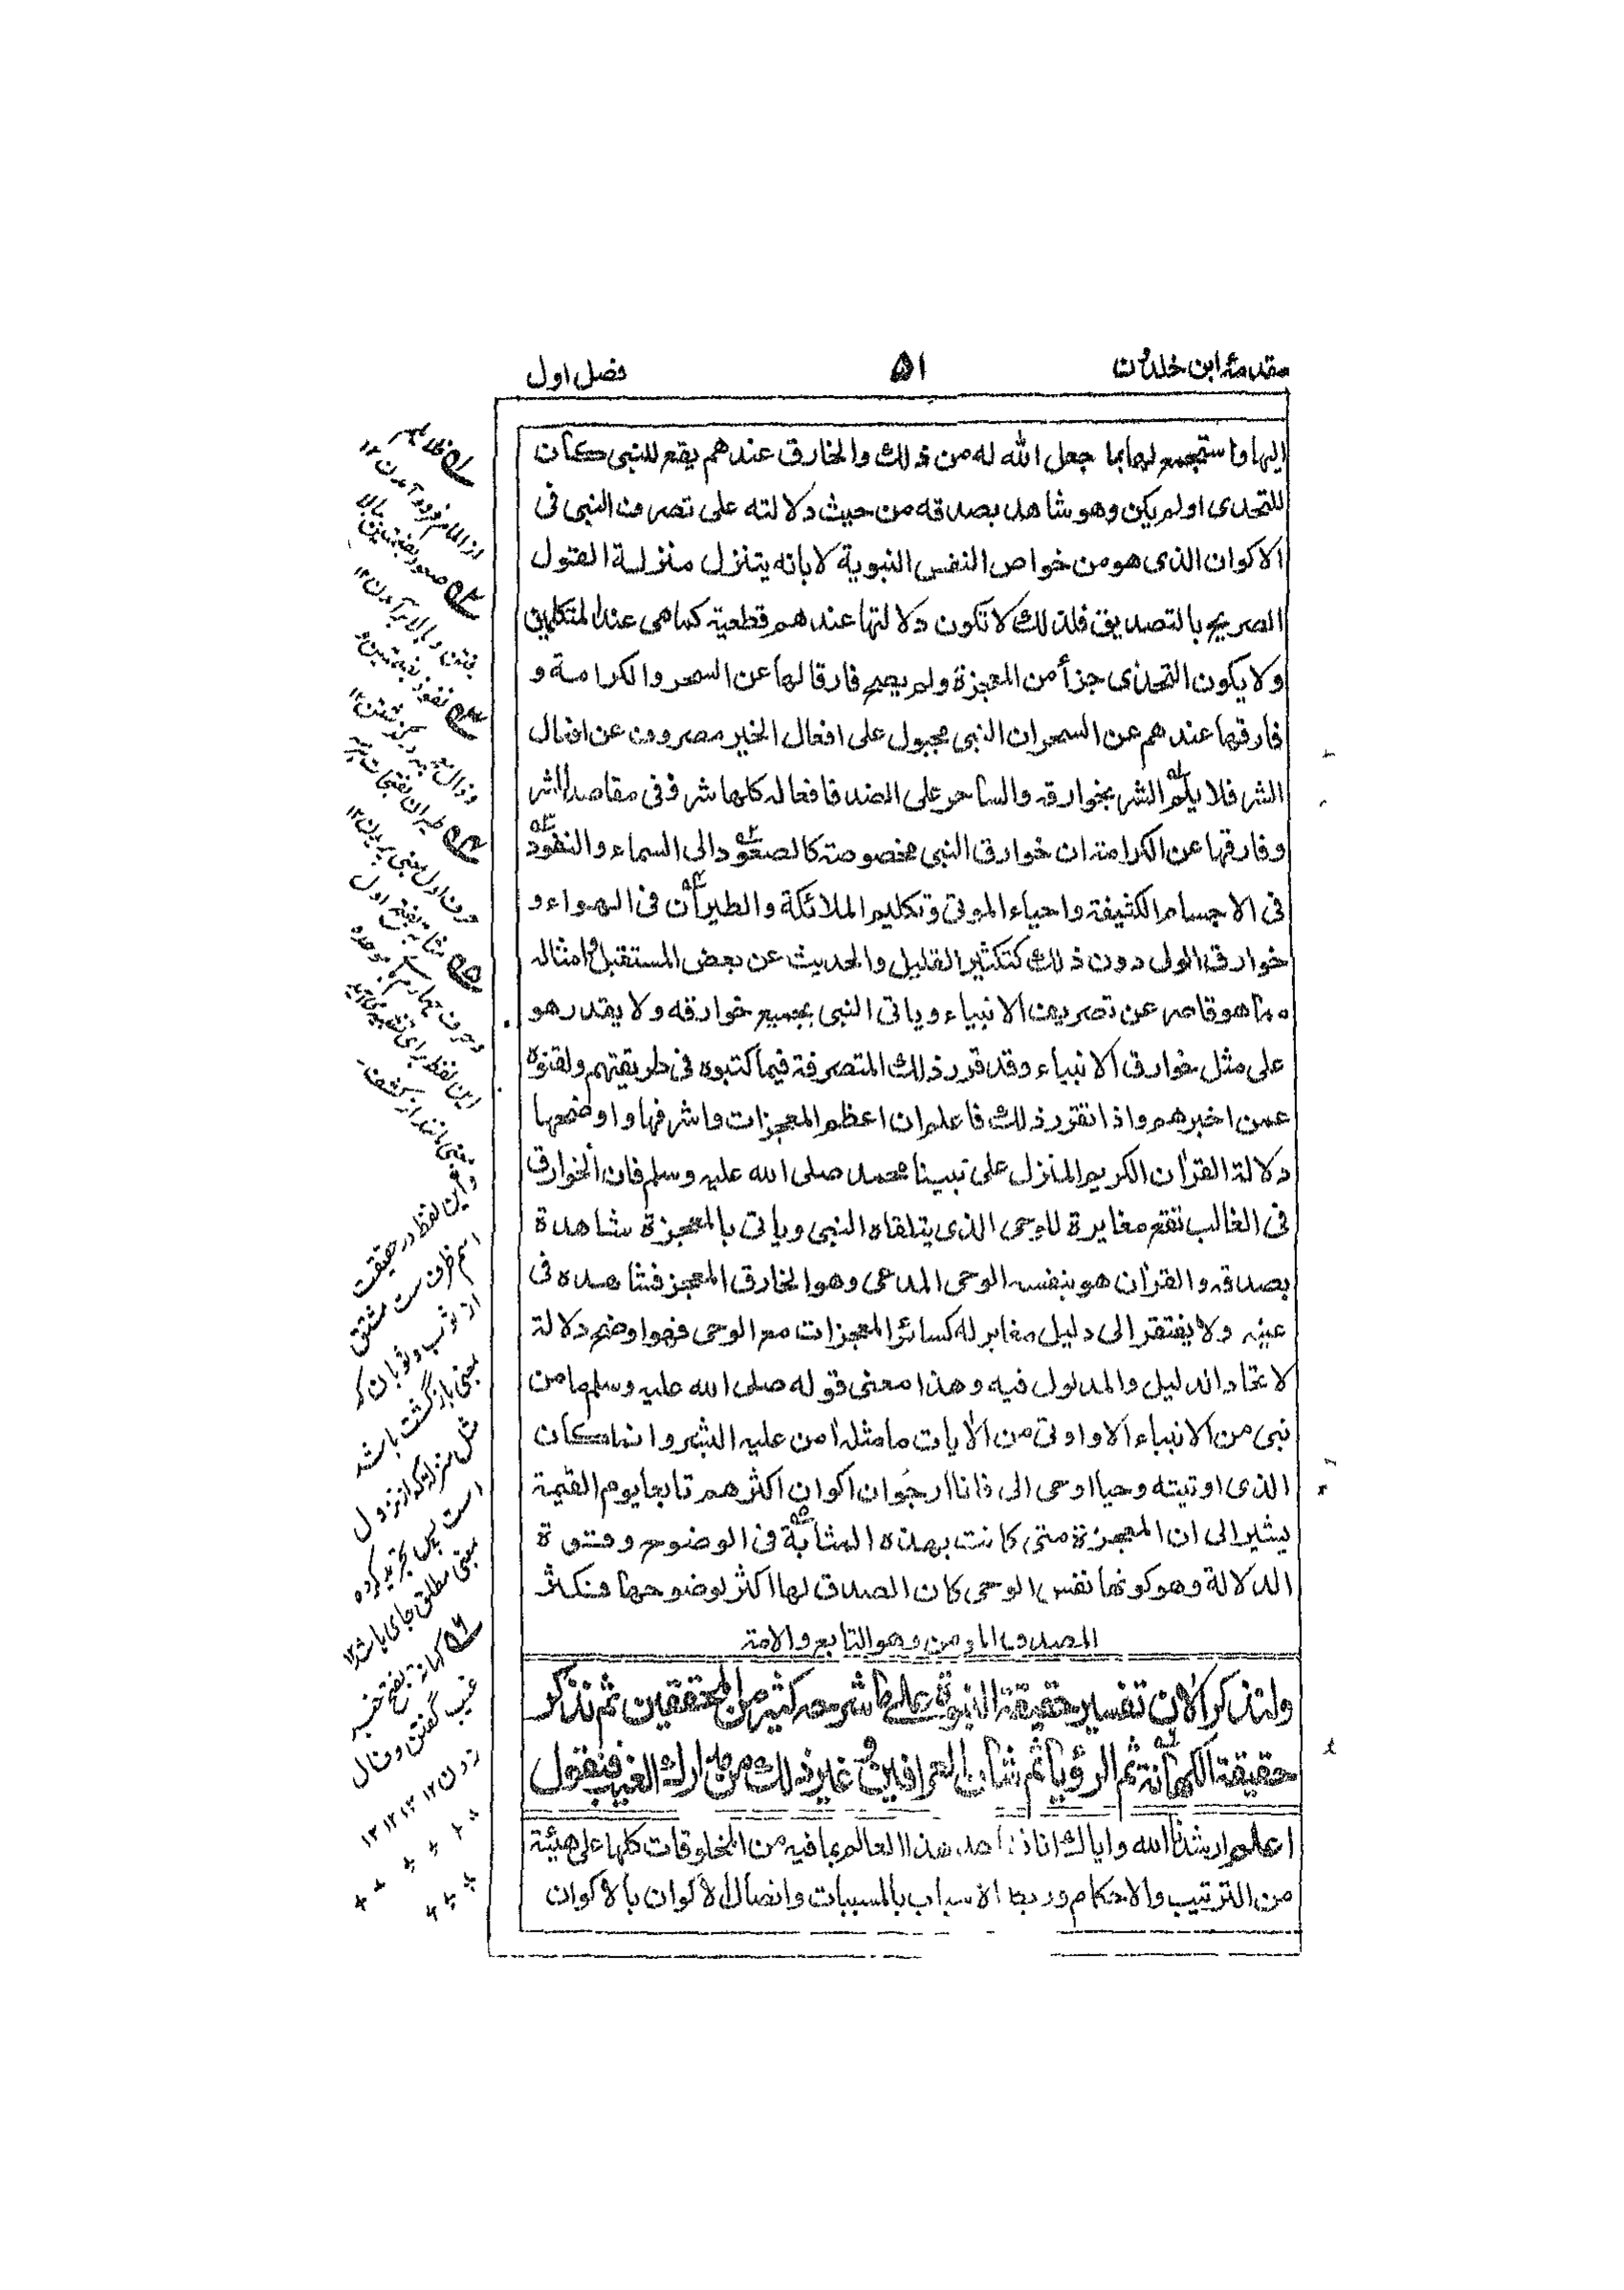 مقدمۂ ابن خلدون
۵۱
فصل اول
اليها واستجمع لها بما جعل الله له من ذلك والخارق عندهم يقع للنبى كان
للتحدى او لم يكن وهو شاهد بصدقه من حيث دلالته على تصرف النبى فى
الاكوان الذى هو من خواص النفس النبوية لا بانه يتنزل منزلة القول
الصريح بالتصديق فلذلك لا تكون دلالتها عندهم قطعية كما هى عند المتكلمين
ولا يكون التحدى جزأ من المعجزة ولم يصح فارقا لها عن السحر والكرامة و
فارقها عندهم عن السحر ان النبى مجبول على افعال الخير مصروف عن افعال
الشر فلا يلم الشر بخوارقه والساحر على الضد فافعاله كلها شر وفى مقاصد الشر
وفارقها عن الكرامة ان خوارق النبى مخصوصة كالصعود الى السماء والنفوذ
فى الاجسام الكثيفة واحياء الموتى وتكليم الملائكة والطيران فى الهواء و
خوارق الولى دون ذلك كتكثير القليل والحديث عن بعض المستقبل وامثاله
مما هو قاصر عن تصريف الانبياء وياتى النبى بجميع خوارقه ولا يقدر هو
على مثل خوارق الانبياء وقد قرر ذلك المتصرفة فيما كتبوه فى طريقتهم ولقنوه
عمن اخبرهم واذا تقرر ذلك فاعلم ان اعظم المعجزات واشرفها واوضحها
دلالة القرآن الكريم المنزل على نبينا محمد صلى الله عليه وسلم فان الخوارق
فى الغالب تقع مغايرة للوحى الذى يتلقاه النبى وياتى بالمعجزة شاهدة
بصدقه والقرآن هو بنفسه الوحى المدعى وهو الخارق المعجز فشاهده فى
عينه ولا يفتقر الى دليل مغاير له كسائر المعجزات مع الوحى فهو اوضح دلالة
لاتحاد الدليل والمدلول فيه وهذا معنى قوله صلى الله عليه وسلم ما من
نبى من الانبياء الا واوتى من الآيات ما مثله آمن عليه البشر وانما كان
الذى اوتيته وحيا اوحى الى فانا ارجو ان اكون اكثرهم تابعا يوم القيمة
يشير الى ان المعجزة متى كانت بهذه المثابة فى الوضوح وقوة
الدلالة وهو كونها نفس الوحى كان الصدق لها اكثر لوضوحها فكثر
المصدق المؤمن وهو التابع والامة
ولنذكر الآن تفسير حقيقة النبوة على ما شرحه كثير من المحققين ثم نذكر
حقيقة الكهانة ثم الرؤيا ثم شان العرافين وغير ذلك من مدارك الغيب فنقول
اعلم ارشدنا الله واياك انا نشاهد هذا العالم بما فيه من المخلوقات كلها على هيئة
من الترتيب والاحكام وربط الاسباب بالمسببات واتصال الاكوان بالاكوان
واین لفظ در حقیقت
اسم ظرف ست مشتق
از ثوب وثوبان که
بمعنی بازگشت باشد
مثل منزله که از نزول
است پس تجرید کرده
بمعنی مطلق جای باشد ۱۲
غیب گفتن وفال
زدن ۱۲ ۱۲ ۱۲ ۱۲